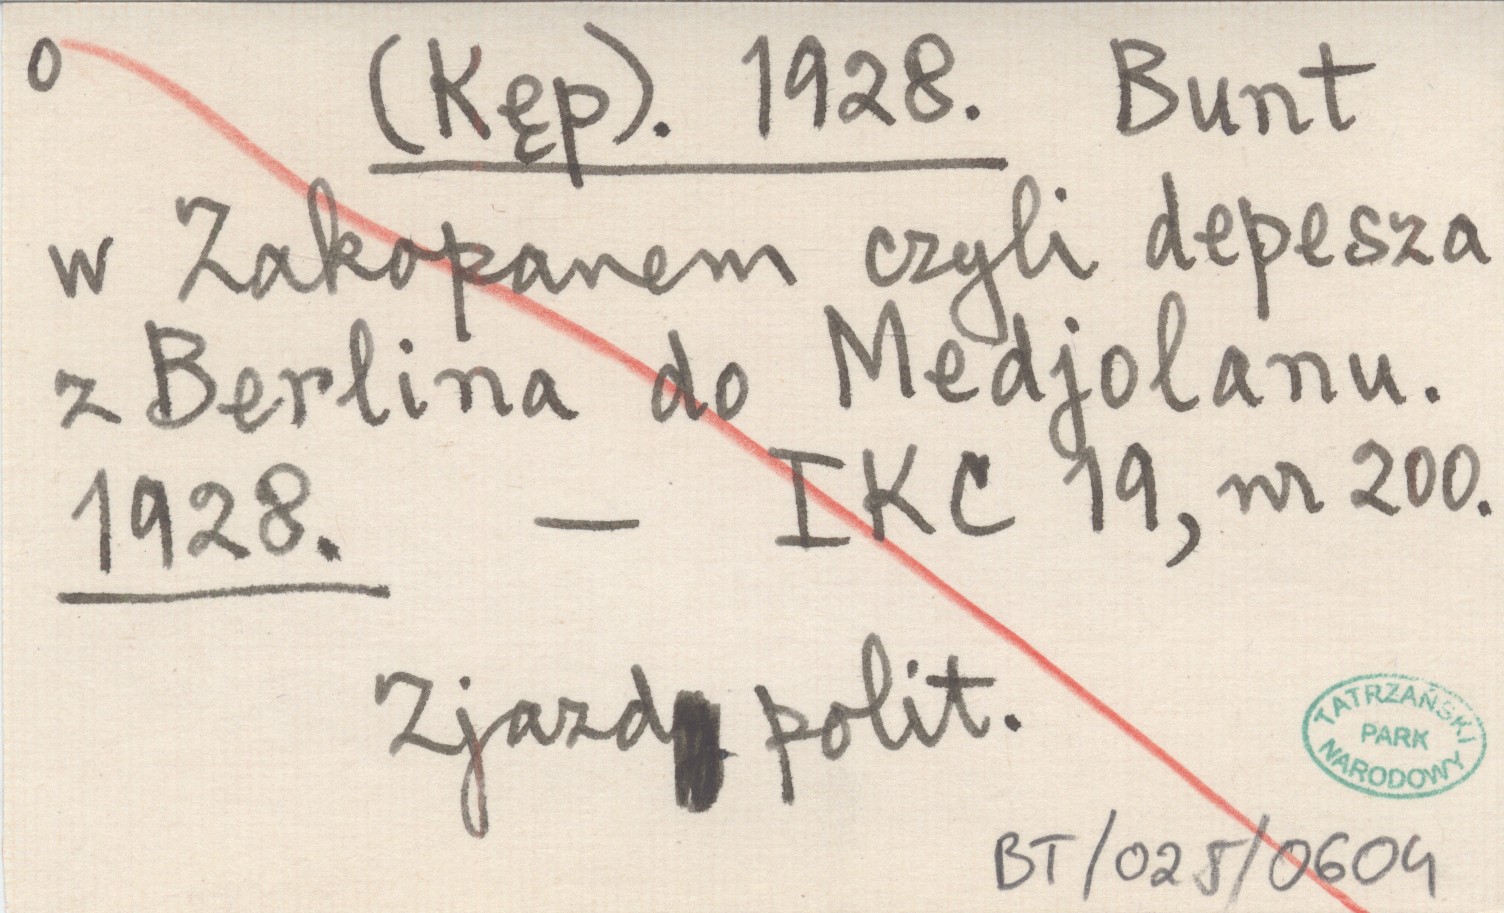 0 (Kęp). 1928. Bunt
w Zakopanem czyli depesza
z Berlina do Medjolanu.
1928. — IKC 19, nr 200.
Zjazd polit.
TATRZAŃSKI
PARK
NARODOWY
BT/025/0604